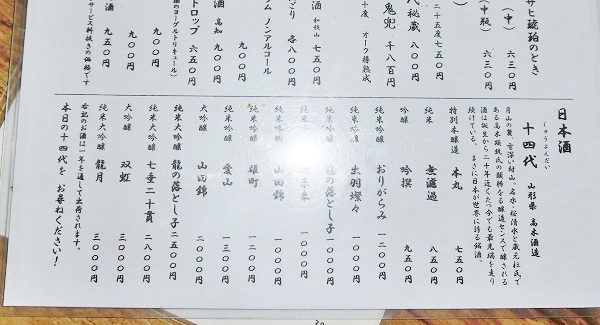 サヒ琥珀のとき
(中) 六三〇円
(中瓶) 六三〇円
二十五度七五〇円
代秘蔵 八〇〇円
鬼兜 千八百円
十度 オーク樽熟成
和歌山 七五〇円
どり 各八〇〇円
ム ノンアルコール
九〇〇円
酒 高知 九〇〇円
トロップ 六五〇円
酒のヨーグルトリキュール)
九〇〇円
九〇〇円
酒 九五〇円
サービス料抜きの価格です
日本酒
じゅうよんだい
十四代 山形県 高木酒造
月山の麓、雪深い村山。名水・桜清水と蔵元杜氏で
ある高木顕統氏の類稀なる醸造センスで醸される
酒は誕生から二十年近くたった今でも最先端を走り
続けている。まさに日本が世界に誇る銘酒。
特別本醸造 本丸 七五〇円
純米 無濾過 八五〇円
吟醸 吟撰 九五〇円
純米吟醸 おりがらみ 一二〇〇円
純米吟醸 出羽燦々 一〇〇〇円
龍の落とし子一〇〇〇円
一〇〇〇円
純米吟醸 山田錦 一〇〇〇円
純米吟醸 雄町 一二〇〇円
純米吟醸 愛山 一三〇〇円
大吟醸 山田錦 二〇〇〇円
純米大吟醸 龍の落とし子二五〇〇円
純米大吟醸 七垂二十貫 二八〇〇円
大吟醸 双虹 三〇〇〇円
純米大吟醸 龍月 三〇〇〇円
右記のお酒は一年を通して出荷されます。
本日の十四代を お尋ねください!